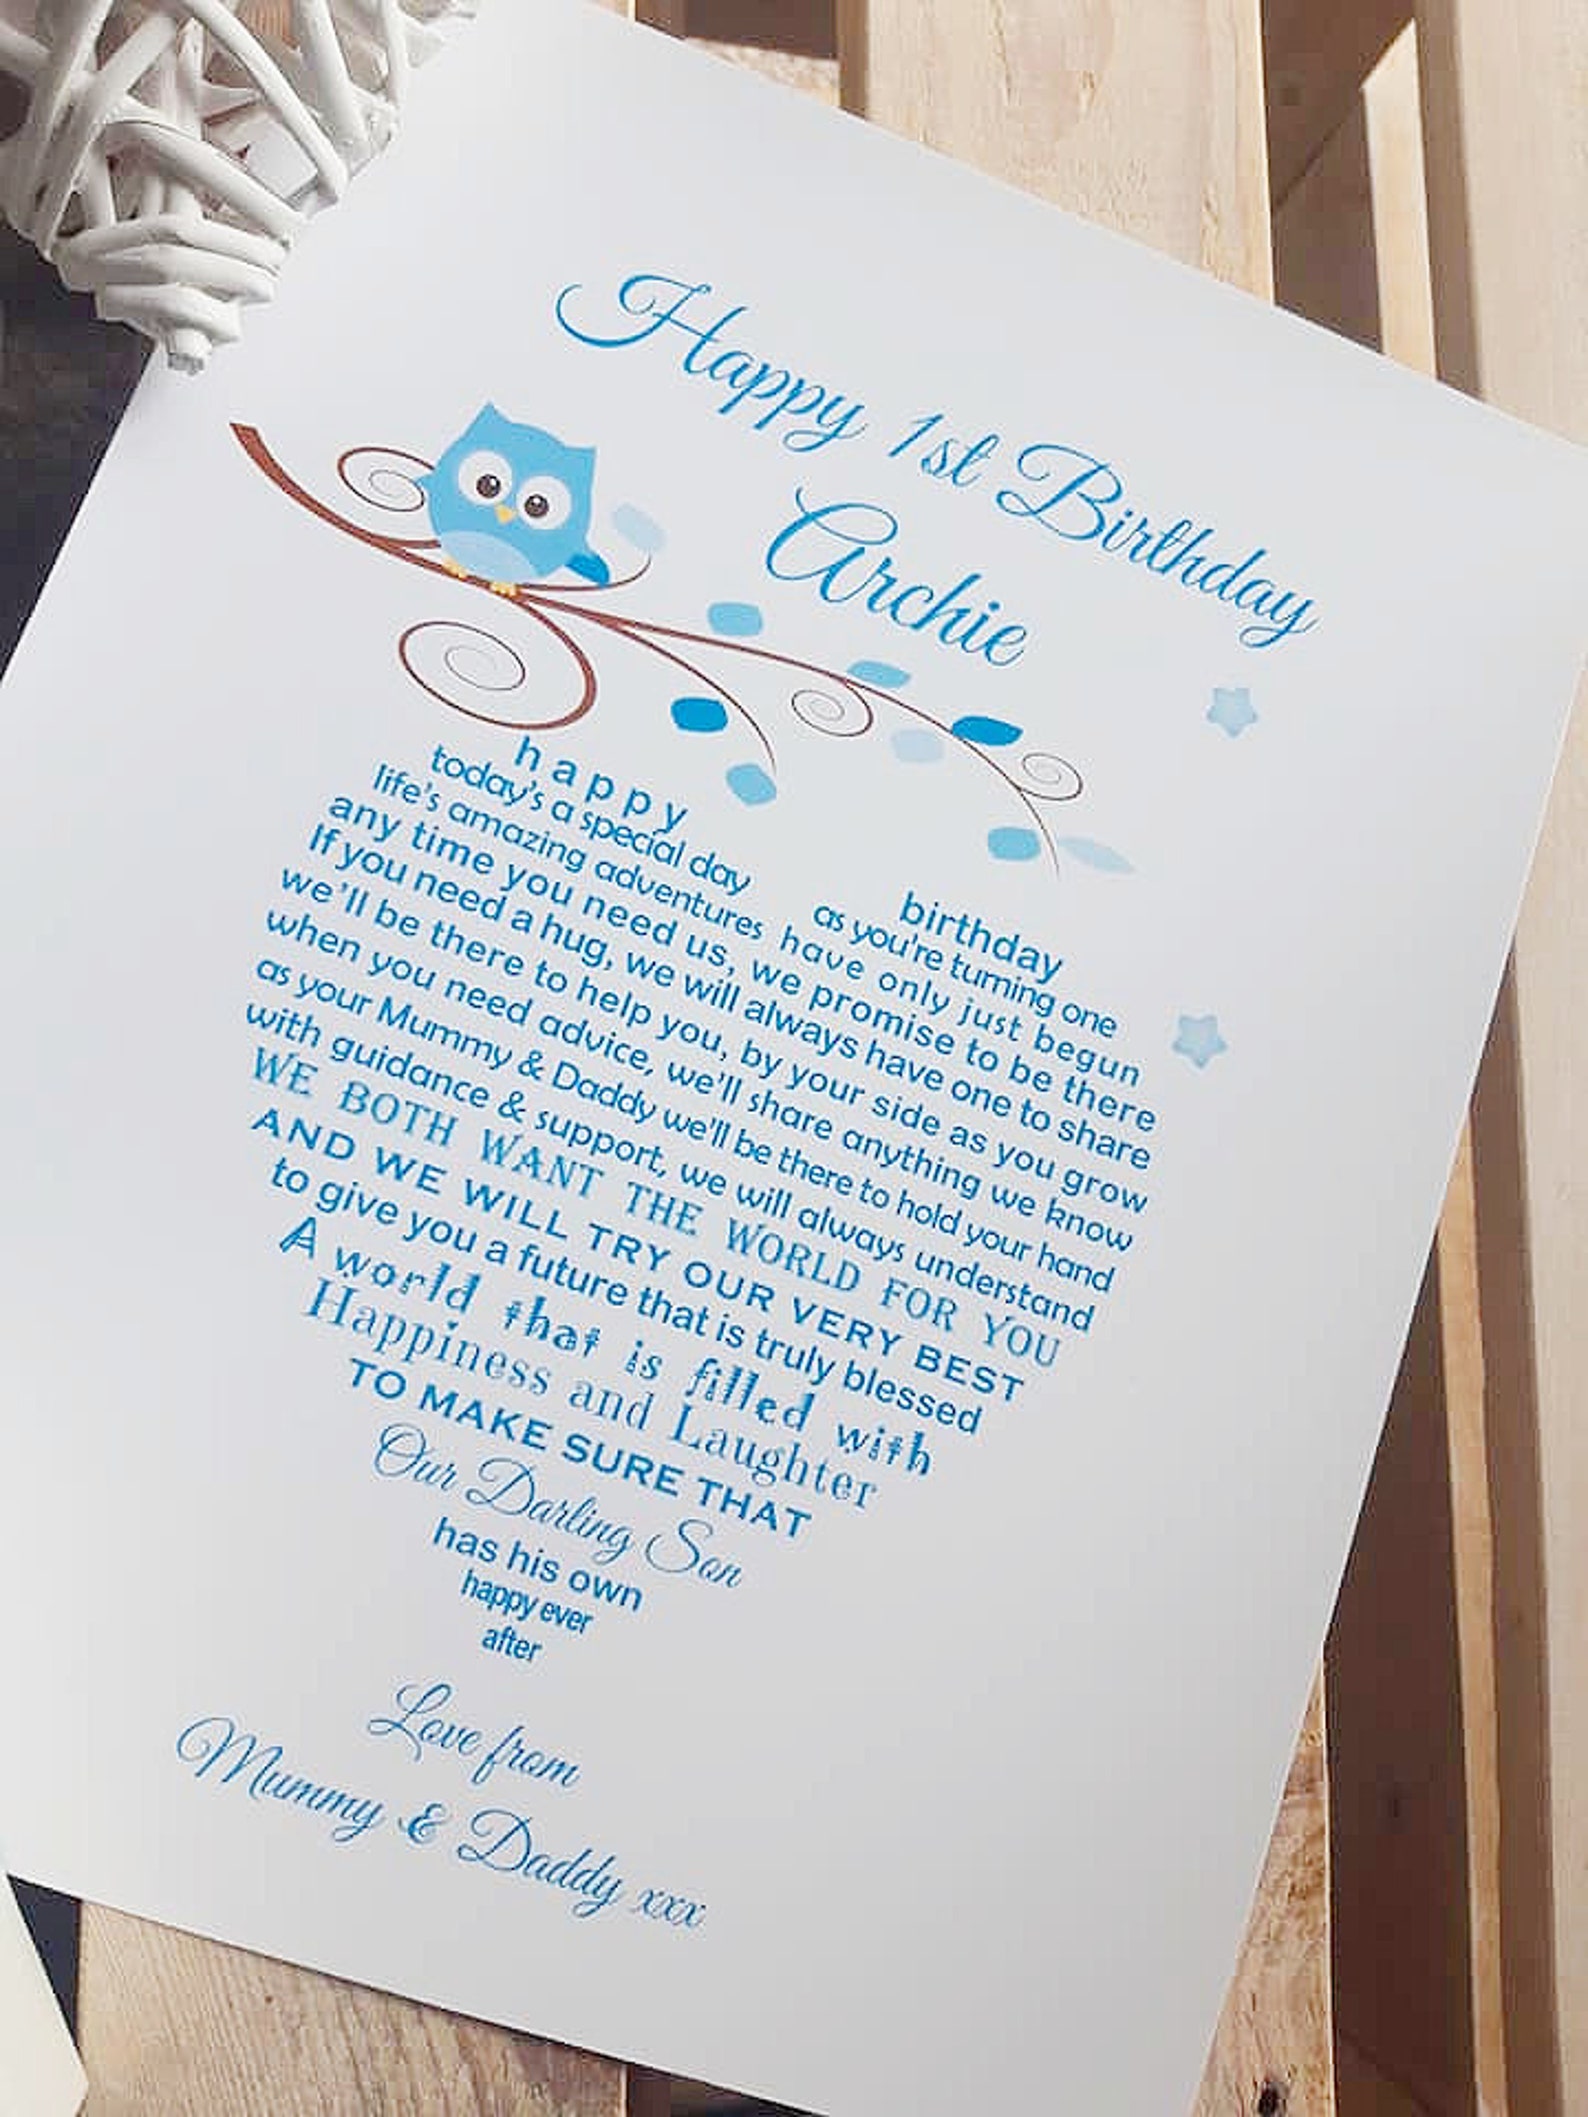 Happy 1st Birthday
Archie
happy birthday
today's a special day as you're turning one
life's amazing adventures have only just begun
any time you need us, we promise to be there
If you need a hug, we will always have one to share
we'll be there to help you, by your side as you grow
when you need advice, we'll share anything we know
as your Mummy & Daddy we'll be there to hold your hand
with guidance & support, we will always understand
WE BOTH WANT THE WORLD FOR YOU
AND WE WILL TRY OUR VERY BEST
to give you a future that is truly blessed
A world that is filled with
Happiness and Laughter
TO MAKE SURE THAT
Our Darling Son
has his own
happy ever
after
Love from
Mummy & Daddy xxx